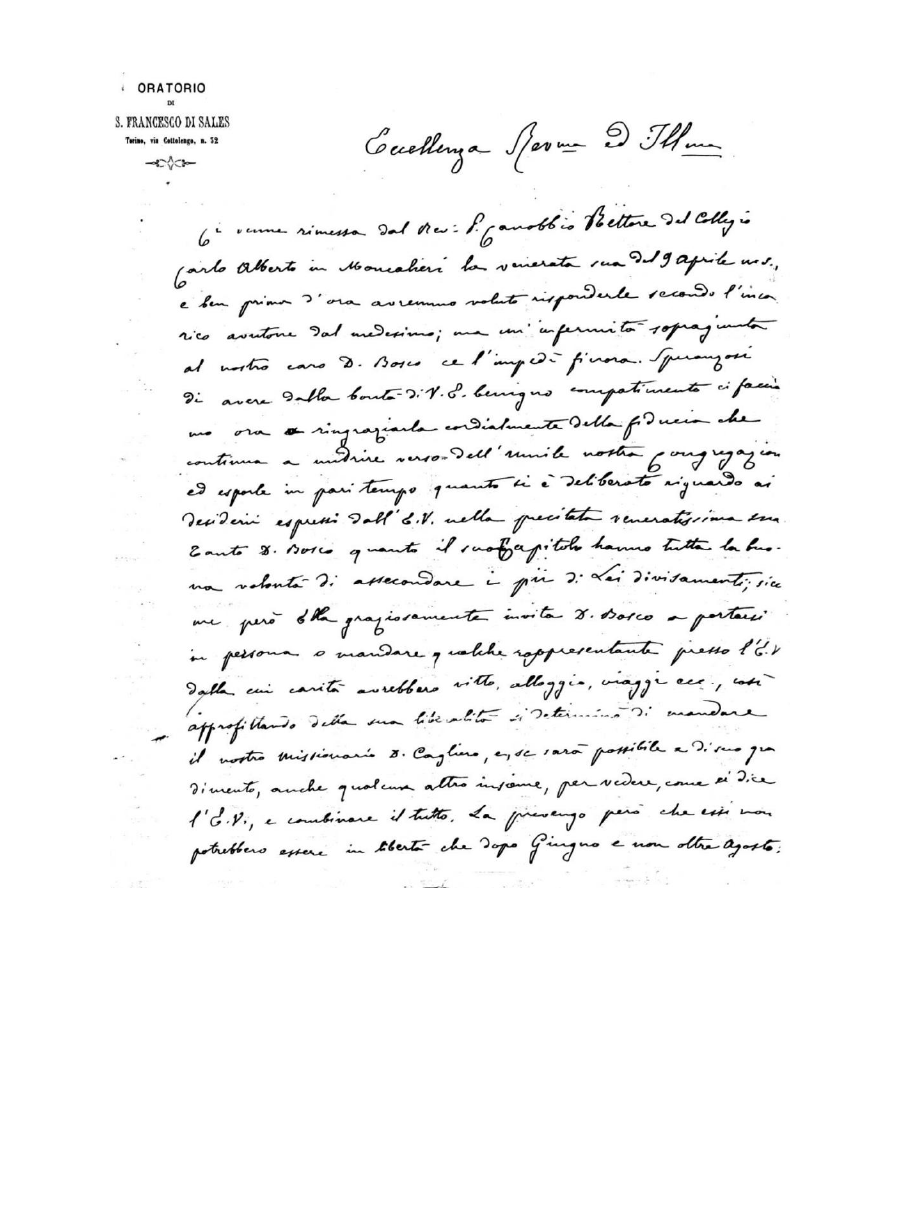 ORATORIO
DI
S. FRANCESCO DI SALES
Torino, via Cottolengo, n. 32
Eccellenza Revma ed Illma
Ci venne rimessa dal Rev: P. Canobbio Rettore del Collegio
Carlo Alberto in Moncalieri la venerata sua del 9 Aprile u.s.,
e ben prima d'ora avremmo voluto risponderle secondo l'inca
rico avutone dal medesimo; ma un'infermità sopragiunta
al nostro caro D. Bosco ce l'impedì finora. Speranzosi
di avere dalla bontà di V. E. benigno compatimento ci faccia
mo ora a ringraziarla cordialmente della fiducia che
continua a nudrire verso dell'umile nostra Congregazion
ed esporle in pari tempo quanto si è deliberato riguardo ai
desiderii espressi dall'E.V. nella precitata veneratissima sua.
Tanto D. Bosco quanto il suo Capitolo hanno tutta la buo-
na volontà di assecondare i pii di Lei divisamenti; sico
me però Ella graziosamente invita D. Bosco a portarsi
in persona o mandare qualche rappresentante presso l'E.V
dalla cui carità avrebbero vitto, alloggio, viaggi ecc., così
approfittando della sua liberalità si determinò di mandare
il nostro Missionario D. Cagliero, e, se sarà possibile e di suo gra
dimento, anche qualcuno altro insieme, per vedere, come si dice
l'E.V., e combinare il tutto. La prevengo però che essi non
potrebbero essere in libertà che dopo Giugno e non oltre Agosto.